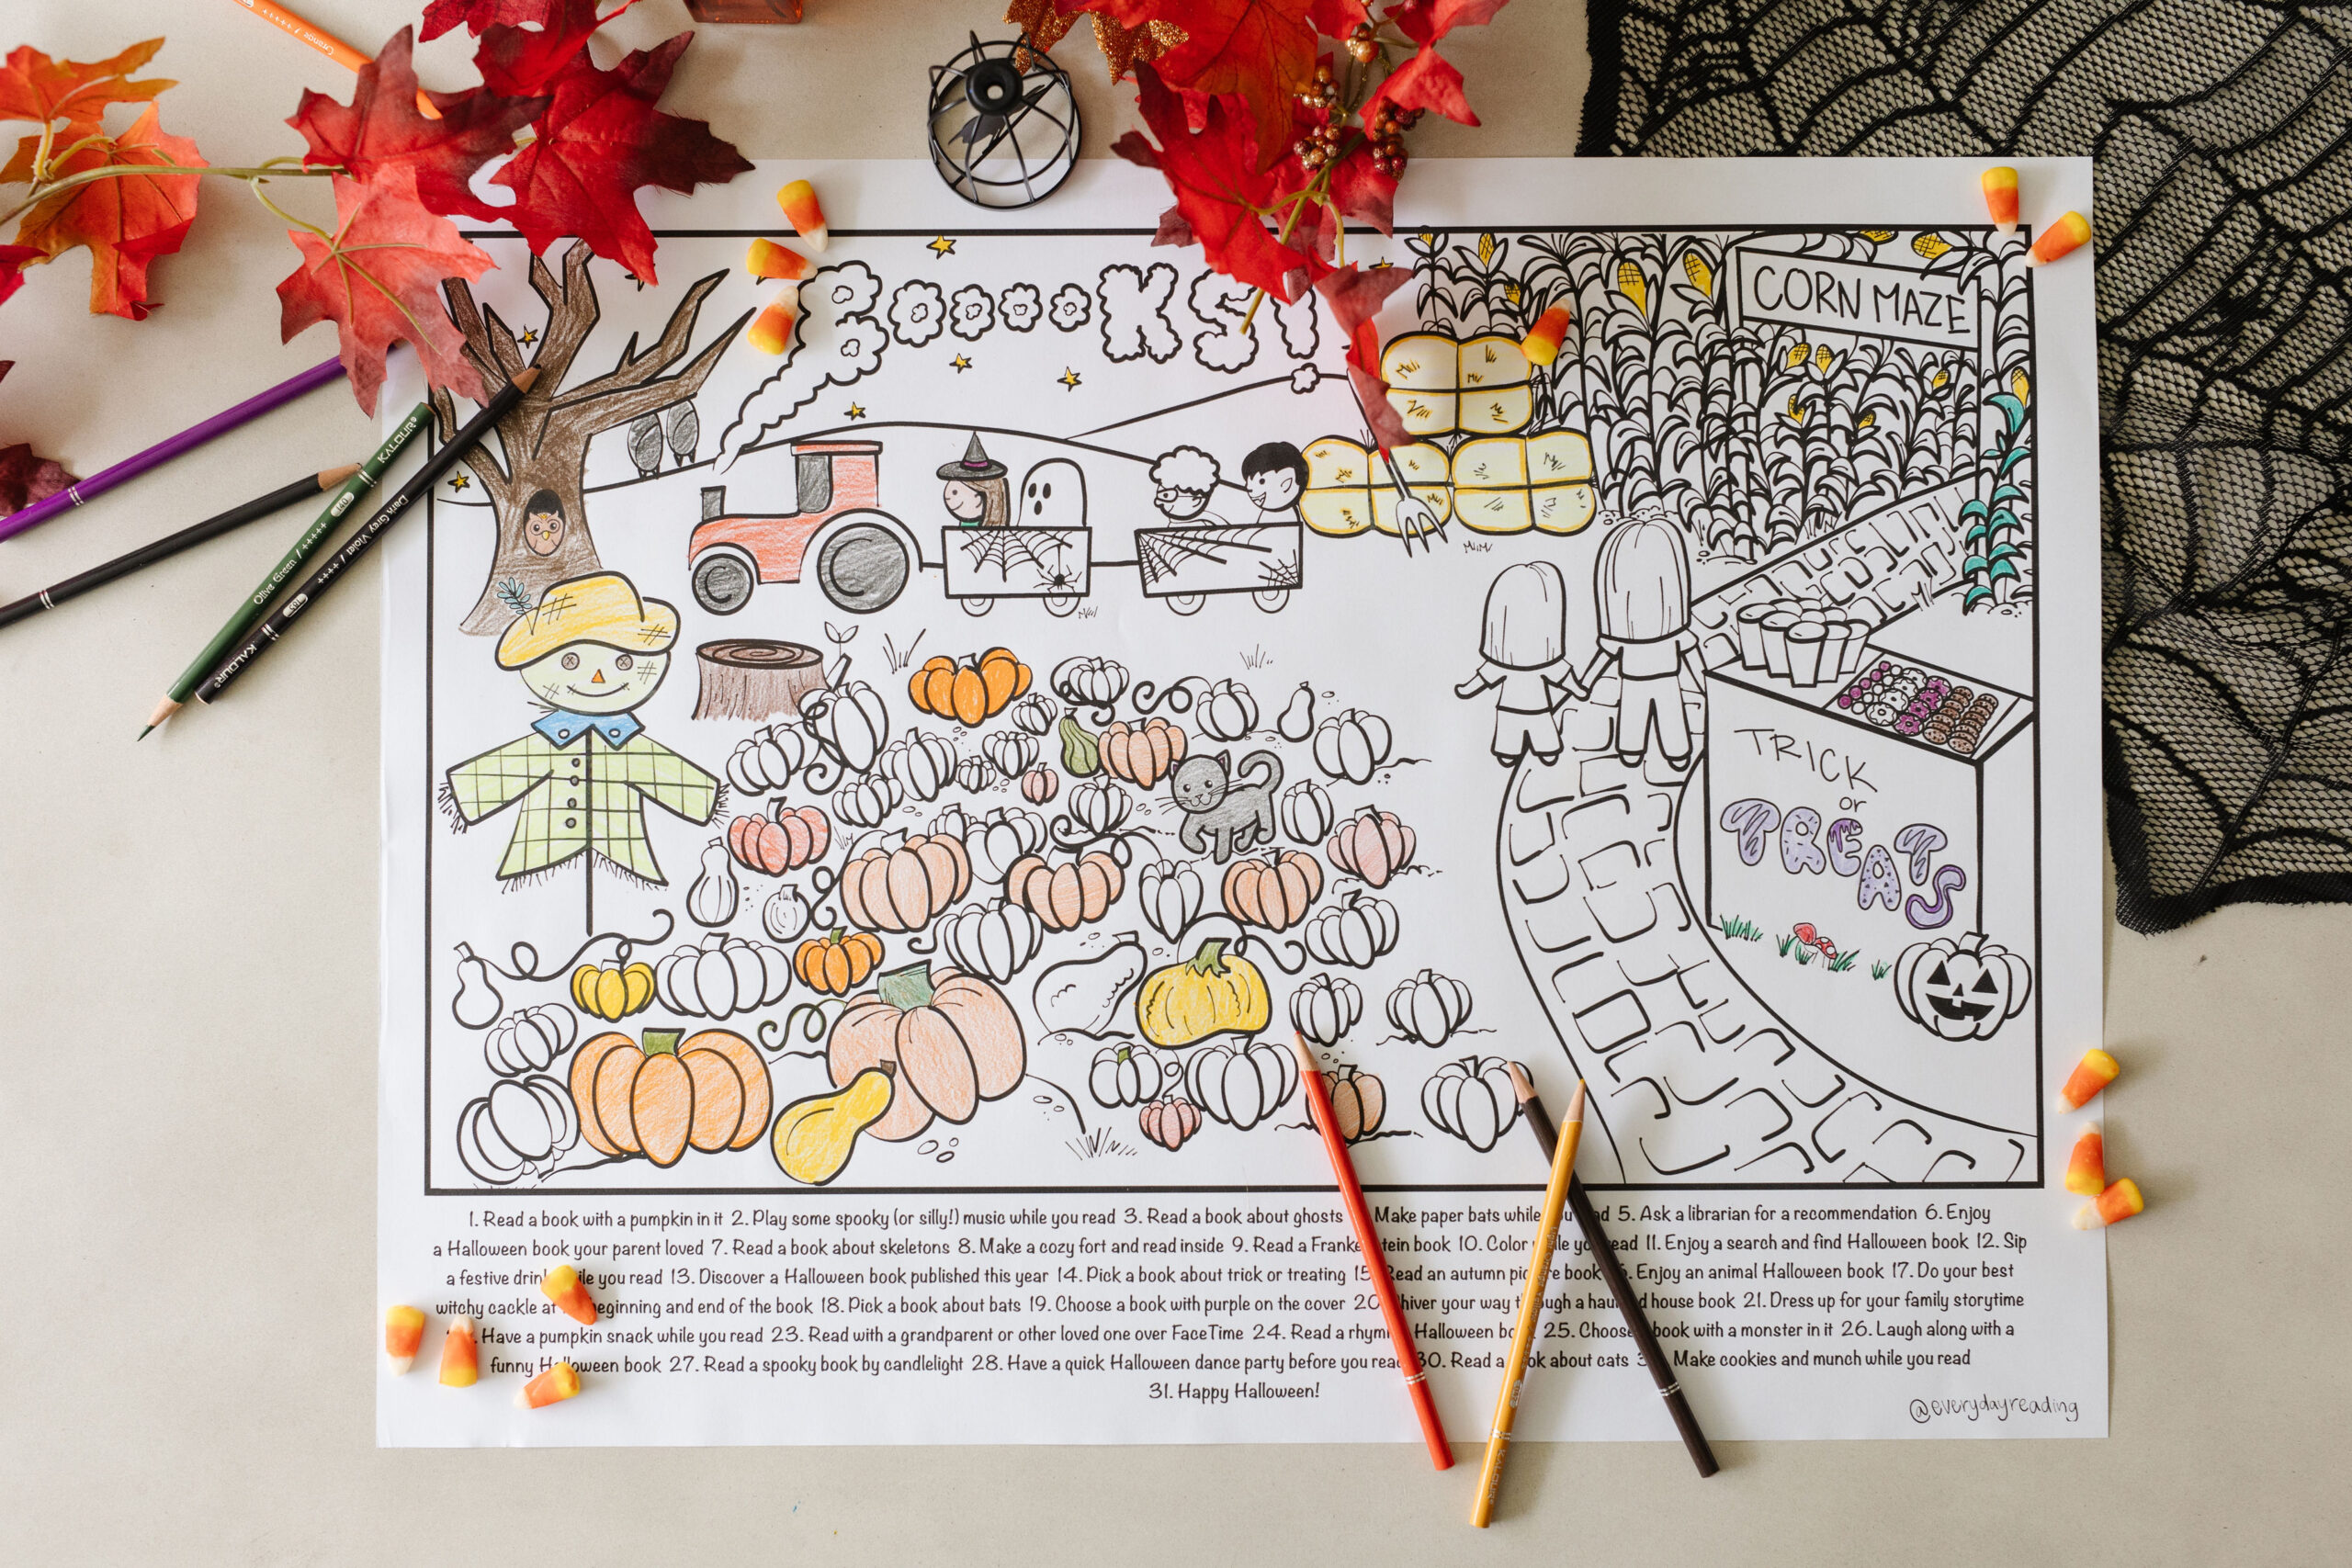 Orange
BooooKS!
CORN MAZE
KALOUR
Olive Green
Dark Grey Violet
KALOUR
TRICK
or
TREATS
1. Read a book with a pumpkin in it 2. Play some spooky (or silly!) music while you read 3. Read a book about ghosts Make paper bats while you read 5. Ask a librarian for a recommendation 6. Enjoy
a Halloween book your parent loved 7. Read a book about skeletons 8. Make a cozy fort and read inside 9. Read a Frankenstein book 10. Color while you read 11. Enjoy a search and find Halloween book 12. Sip
a festive drink while you read 13. Discover a Halloween book published this year 14. Pick a book about trick or treating 15. Read an autumn picture book 16. Enjoy an animal Halloween book 17. Do your best
witchy cackle at beginning and end of the book 18. Pick a book about bats 19. Choose a book with purple on the cover 20. Shiver your way through a haunted house book 21. Dress up for your family storytime
Have a pumpkin snack while you read 23. Read with a grandparent or other loved one over FaceTime 24. Read a rhyming Halloween book 25. Choose book with a monster in it 26. Laugh along with a
funny Halloween book 27. Read a spooky book by candlelight 28. Have a quick Halloween dance party before you read 30. Read a book about cats Make cookies and munch while you read
31. Happy Halloween!
@everydayreading